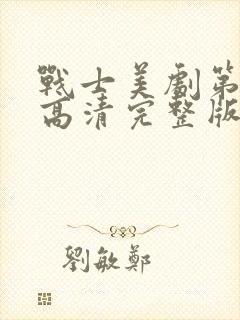 戰士美劇第
高清完整版
劉敏鄭